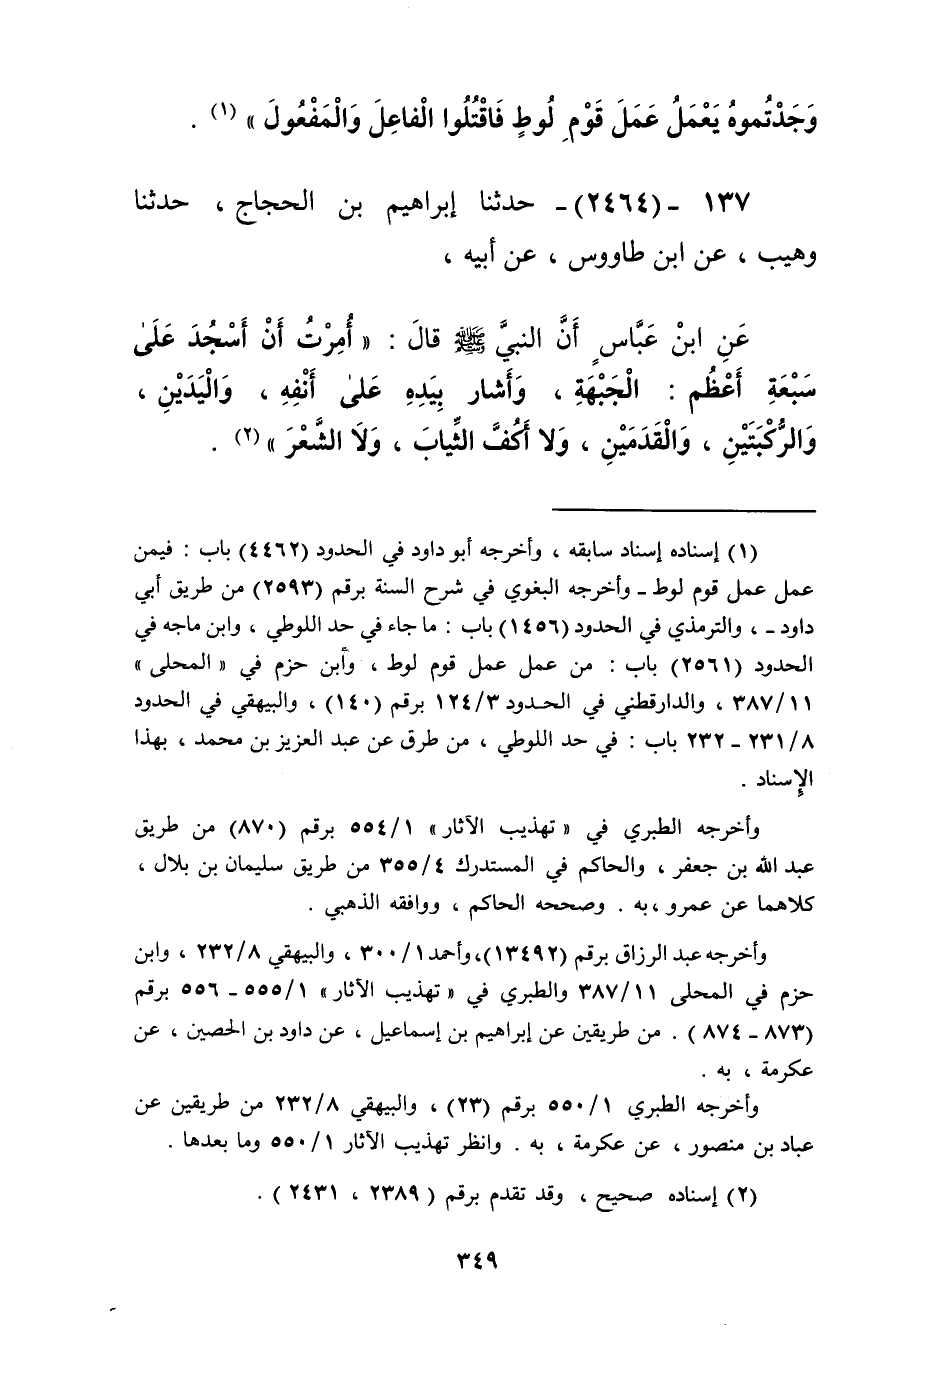 وَجَدْتُموهُ يَعْمَلُ عَمَلَ قَوْمِ لُوطٍ فَاقْتُلُوا الْفاعِلَ وَالْمَفْعُولَ » (١) .
١٣٧ ـ (٢٤٦٤) ـ حدثنا إبراهيم بن الحجاج ، حدثنا
وهيب ، عن ابن طاووس ، عن أبيه ،
عَنِ ابنْ عَبَّاسٍ أَنَّ النبيَّ ﷺ قالَ : « أُمِرْتُ أَنْ أَسْجُدَ عَلَىٰ
سَبْعَةِ أَعْظُمٍ : الْجَبْهَةِ ، وَأَشار بِيَدِهِ عَلىٰ أَنْفِهِ ، وَالْيَدَيْنِ ،
وَالرُّكْبَتَيْنِ ، وَالْقَدَمَيْنِ ، وَلا أَكُفَّ الثِّيابَ ، وَلَا الشَّعْرَ » (٢) .
(١) إسناده إسناد سابقه ، وأخرجه أبو داود في الحدود (٤٤٦٢) باب : فيمن
عمل عمل قوم لوط ـ وأخرجه البغوي في شرح السنة برقم (٢٥٩٣) من طريق أبي
داود ـ ، والترمذي في الحدود (١٤٥٦) باب : ما جاء في حد اللوطي ، وابن ماجه في
الحدود (٢٥٦١) باب : من عمل عمل قوم لوط ، وأبن حزم في « المحلى »
٣٨٧/١١ ، والدارقطني في الحدود ١٢٤/٣ برقم (١٤٠) ، والبيهقي في الحدود
٢٣١/٨ ـ ٢٣٢ باب : في حد اللوطي ، من طرق عن عبد العزيز بن محمد ، بهذا
الإسناد .
وأخرجه الطبري في « تهذيب الآثار » ٥٥٤/١ برقم (٨٧٠) من طريق
عبد الله بن جعفر ، والحاكم في المستدرك ٣٥٥/٤ من طريق سليمان بن بلال ،
كلاهما عن عمرو ،به . وصححه الحاكم ، ووافقه الذهبي .
وأخرجه عبد الرزاق برقم (١٣٤٩٢)، وأحمد ٣٠٠/١ ، والبيهقي ٢٣٢/٨ ، وابن
حزم في المحلى ٣٨٧/١١ والطبري في « تهذيب الآثار » ٥٥٥/١ ـ ٥٥٦ برقم
(٨٧٣ ـ ٨٧٤ ) . من طريقين عن إبراهيم بن إسماعيل ، عن داود بن الحصين ، عن
عكرمة ، به .
وأخرجه الطبري ٥٥٠/١ برقم (٢٣) ، والبيهقي ٢٣٢/٨ من طريقين عن
عباد بن منصور ، عن عكرمة ، به . وانظر تهذيب الآثار ٥٥٠/١ وما بعدها .
(٢) إسناده صحيح ، وقد تقدم برقم ( ٢٣٨٩ ، ٢٤٣١ ) .
٣٤٩